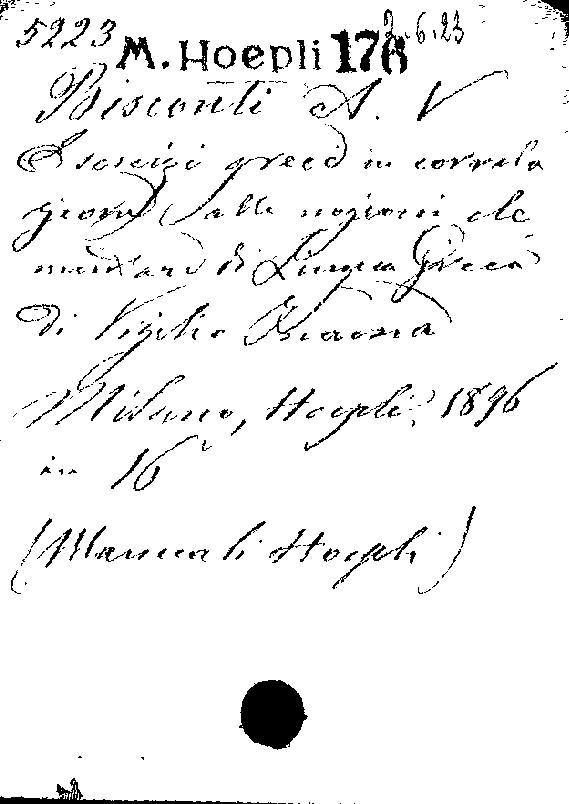 5223 M. Hoepli 176 2.6.23
Bisconti A. V
Esercizi greci in correla
zione alle nozioni ele
mentari di Lingua Greca
di Vigilio Inama
Milano, Hoepli, 1896
in 16°
(Manuali Hoepli)